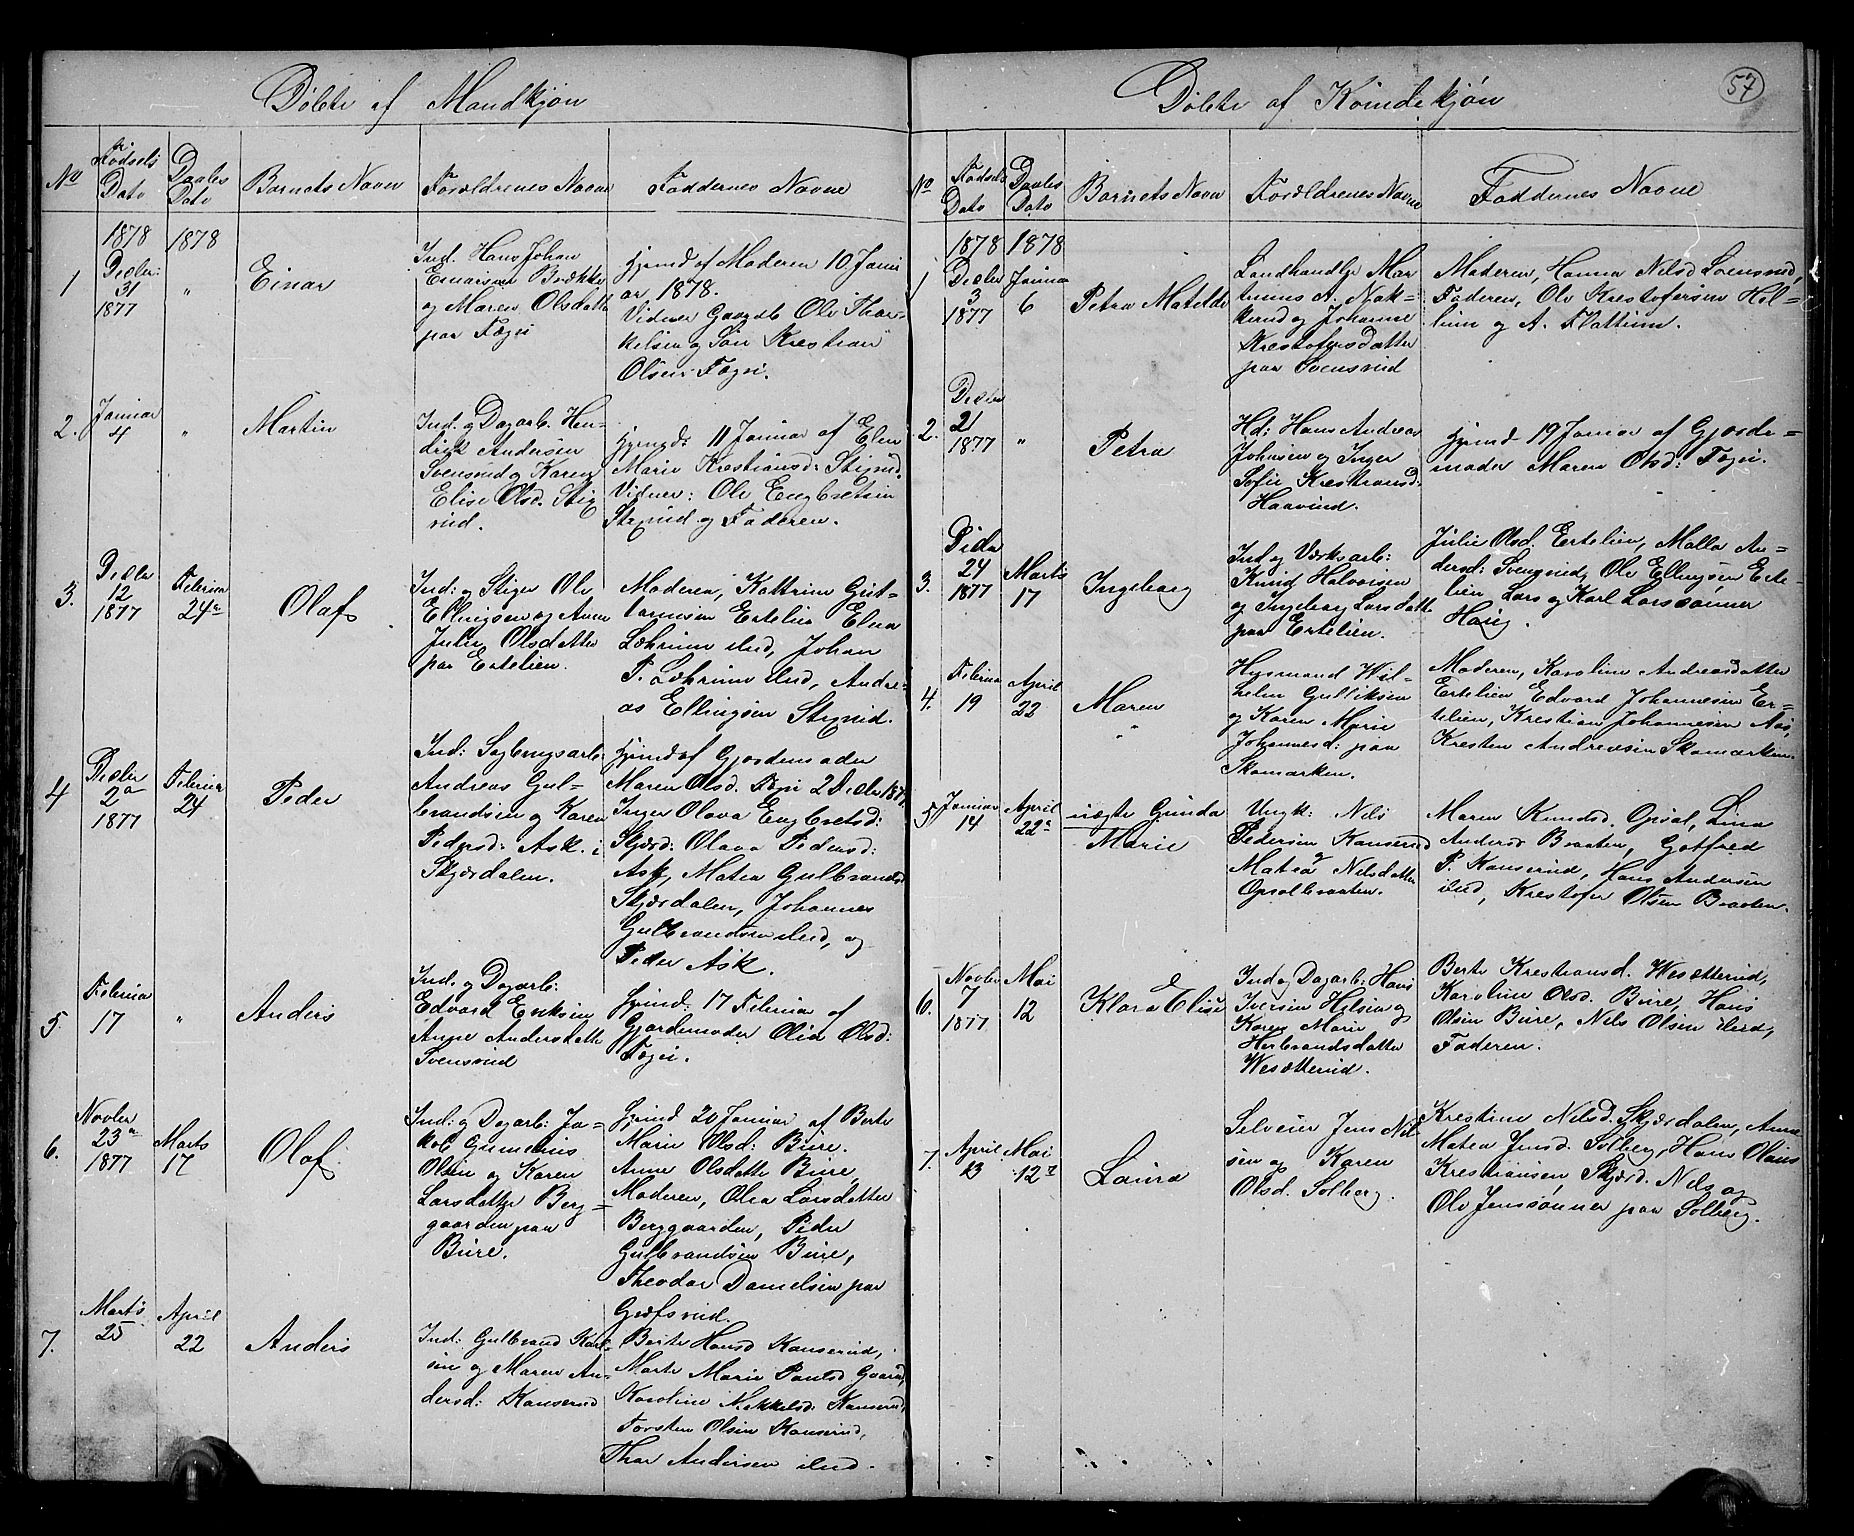 57
Døbte af Mandkjøn
No
Fødsels Dato
Daabs Dato
Barnets Navn
Forældrenes Navne
Faddernes Navne
1878
1878
1
Decbr: 31 1877
"
Einar
Ind. Hans Johan
Einarsen Brække
og Maren Olsdatte
paa Fægri
hjemd af Moderen 10 Janu
ar 1878.
Vidner Gaardb Ole Thor-
kilsen og Søn Krestian
Olsen Fægri.
2.
Januar 4
"
Martin
Ind. og Dagarb. Hen-
drik Andersen
Svensrud og Karen
Elise Olsd. Stix
rud.
hjemd: 11 Januar af Elen
Marie Krestiansd: Stixrud.
Vidner: Ole Engbretsen
Stixrud og Faderen.
3.
Decbr 12 1877
Februar 24a
Olaf
Ind: og Stiger Ole
Ellingsen og Anne
Julie Olsdatter
paa Ertelien.
Moderen, Kathrine Gut-
tormsen Ertelien Elna
Løhrum ibid, Johan
P. Løhrum ibid, Andre-
as Ellingsen Stixrud.
4
Decbr 2a 1877
Februar 24
Peder
Ind: Sagbrugsarb:
Andreas Gul-
brandsen og Karen
Pedersd: Ask i
Skjærdalen.
hjemd af Gjordemoder
Maren Olsd. Fægri 2 Decbr 1877.
Inger Olava Engbretsd:
Skjærd: Olava Pedersd:
Ask, Matea Gulbrandsd
Skjærdalen, Johannes
Gulbrandsen ibid, og
Peder Ask.
5.
Februar 17
"
Anders
Ind. og Dagarb:
Edvard Eriksen
Anne Andersdatte
Svensrud
hjemd. 17 Februar af
Gjordemoder Olia Olsd:
Fægri.
6.
Novbr 23a 1877
Marts 17
Olaf.
Ind: og Dagarb: Ja-
kob Gunnerius
Olsen og Karen
Larsdatter Berg-
gaarden paa
Bure.
hjemd 20 Januar af Berte
Marie Olsd: Bure.
Anne Olsdatte Bure,
Moderen, Olea Larsdatter
Berggaarden, Peder
Gulbrandsen Bure,
Theodor Danielsen paa
Græfsrud.
7.
Marts 25
April 22
Anders
Ind: Gulbrand Karl-
sen og Maren An-
dersd: Kanserud
Berte Hansd Kanserud,
Marte Marie Paulsd Gaara,
Karoline Mikkelsd: Kanserud,
Torsten Olsen Kanserud,
Thor Andersen ibid.
Døbte af Kvindekjøn
No
Fødsels Dato
Daabs Dato
Barnets Navn
Forældrenes Navne
Faddernes Navne
1878
1878
1
Decbr 3 1877
Januar 6
Petra Matilde
Landhandler Mar
tinius A. Nok-
kerud og Johanne
Krestofersdatter
paa Svensrud
Moderen, Hanna Nilsd Svensrud,
Faderen, Ole Krestofersen Hol-
lum og A. Flattum.
2.
Decbr 21 1877
"
Petra
Hd: Hans Andreas
Johnsen og Inger
Sofie Krestiansd:
Haavind.
hjemd 19 Januar af Gjorde-
moder Maren Olsd: Fægri.
3.
Decbr 24 1877
Marts 17
Ingeborg
Ind og Værksarb:
Knud Halvorsen
og Ingeborg Larsdatte
paa Ertelien.
Julie Olsd. Ertelien, Malla An-
dersd: Svensrud, Ole Ellingsen Erte-
lien Lars og Karl Larssønner
Haug.
4.
Februar 19
April 22
Maren
"
Husmand Wil-
helm Gulliksen
og Karen Marie
Johannesd: paa
Skamarken.
Moderen, Karoline Andreasdatter
Ertelien Edvard Johannesen Er-
telien, Krestian Johannesen Aas,
Kresten Andreasen Skamarken.
5
Januar 14
April 22a
uægte Gunda
Marie
Ungk: Nils
Pedersen Kanserud
og
Matea Nilsdatter
Opsalbraaten.
Maren Knudsd. Opsal, Lina
Andersd Braaten, Gotfred
P. Kanserud, Hans Andersen
ibid, Krestofer Olsen Braaten.
6.
Novbr 7 1877
Mai 12
Klara Elise
Ind og Dagarb: Hans
Iversen Helsen og
Karen Marie
Herbrandsdatter
Wesætterud.
Berte Krestiansd. Wesætterud,
Karoline Olsd. Bure, Hans
Olsen Bure, Nils Olsen ibid,
Faderen.
7.
April 13
Mai 12
Laura
Selveier Jens Nil-
sen og Karen
Olsd. Solberg.
Krestine Nilsd Skjærdalen, Anne
Matea Jensd. Solberg, Hans Olaus
Krestiansen Skjærd. Nils og
Ole Jenssønner paa Solberg.